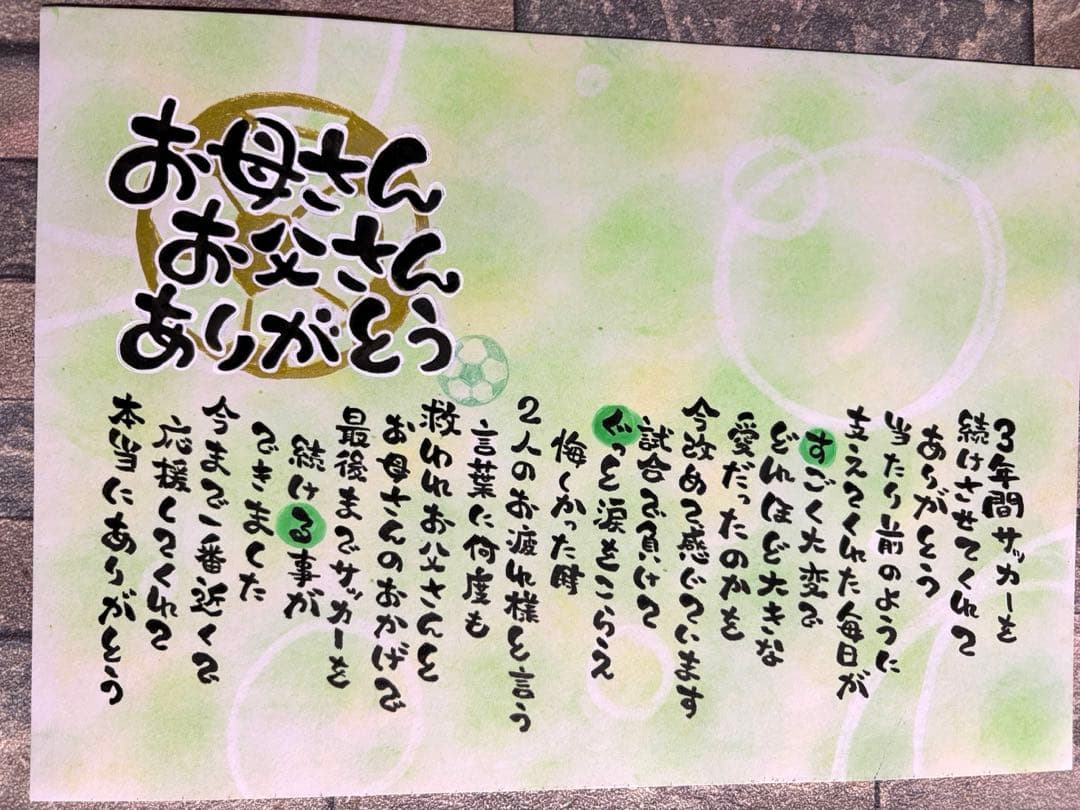 お母さん
お父さん
ありがとう
3年間サッカーを
続けさせてくれて
ありがとう
当たり前のように
支えてくれた毎日が
すごく大変で
どれほど大きな
愛だったのかを
今改めて感じています
試合で負けて
ぐっと涙をこらえ
悔しかった時
2人のお疲れ様と言う
言葉に何度も
救われお父さんと
お母さんのおかげで
最後までサッカーを
続ける事が
できました
今まで一番近くで
応援してくれて
本当にありがとう